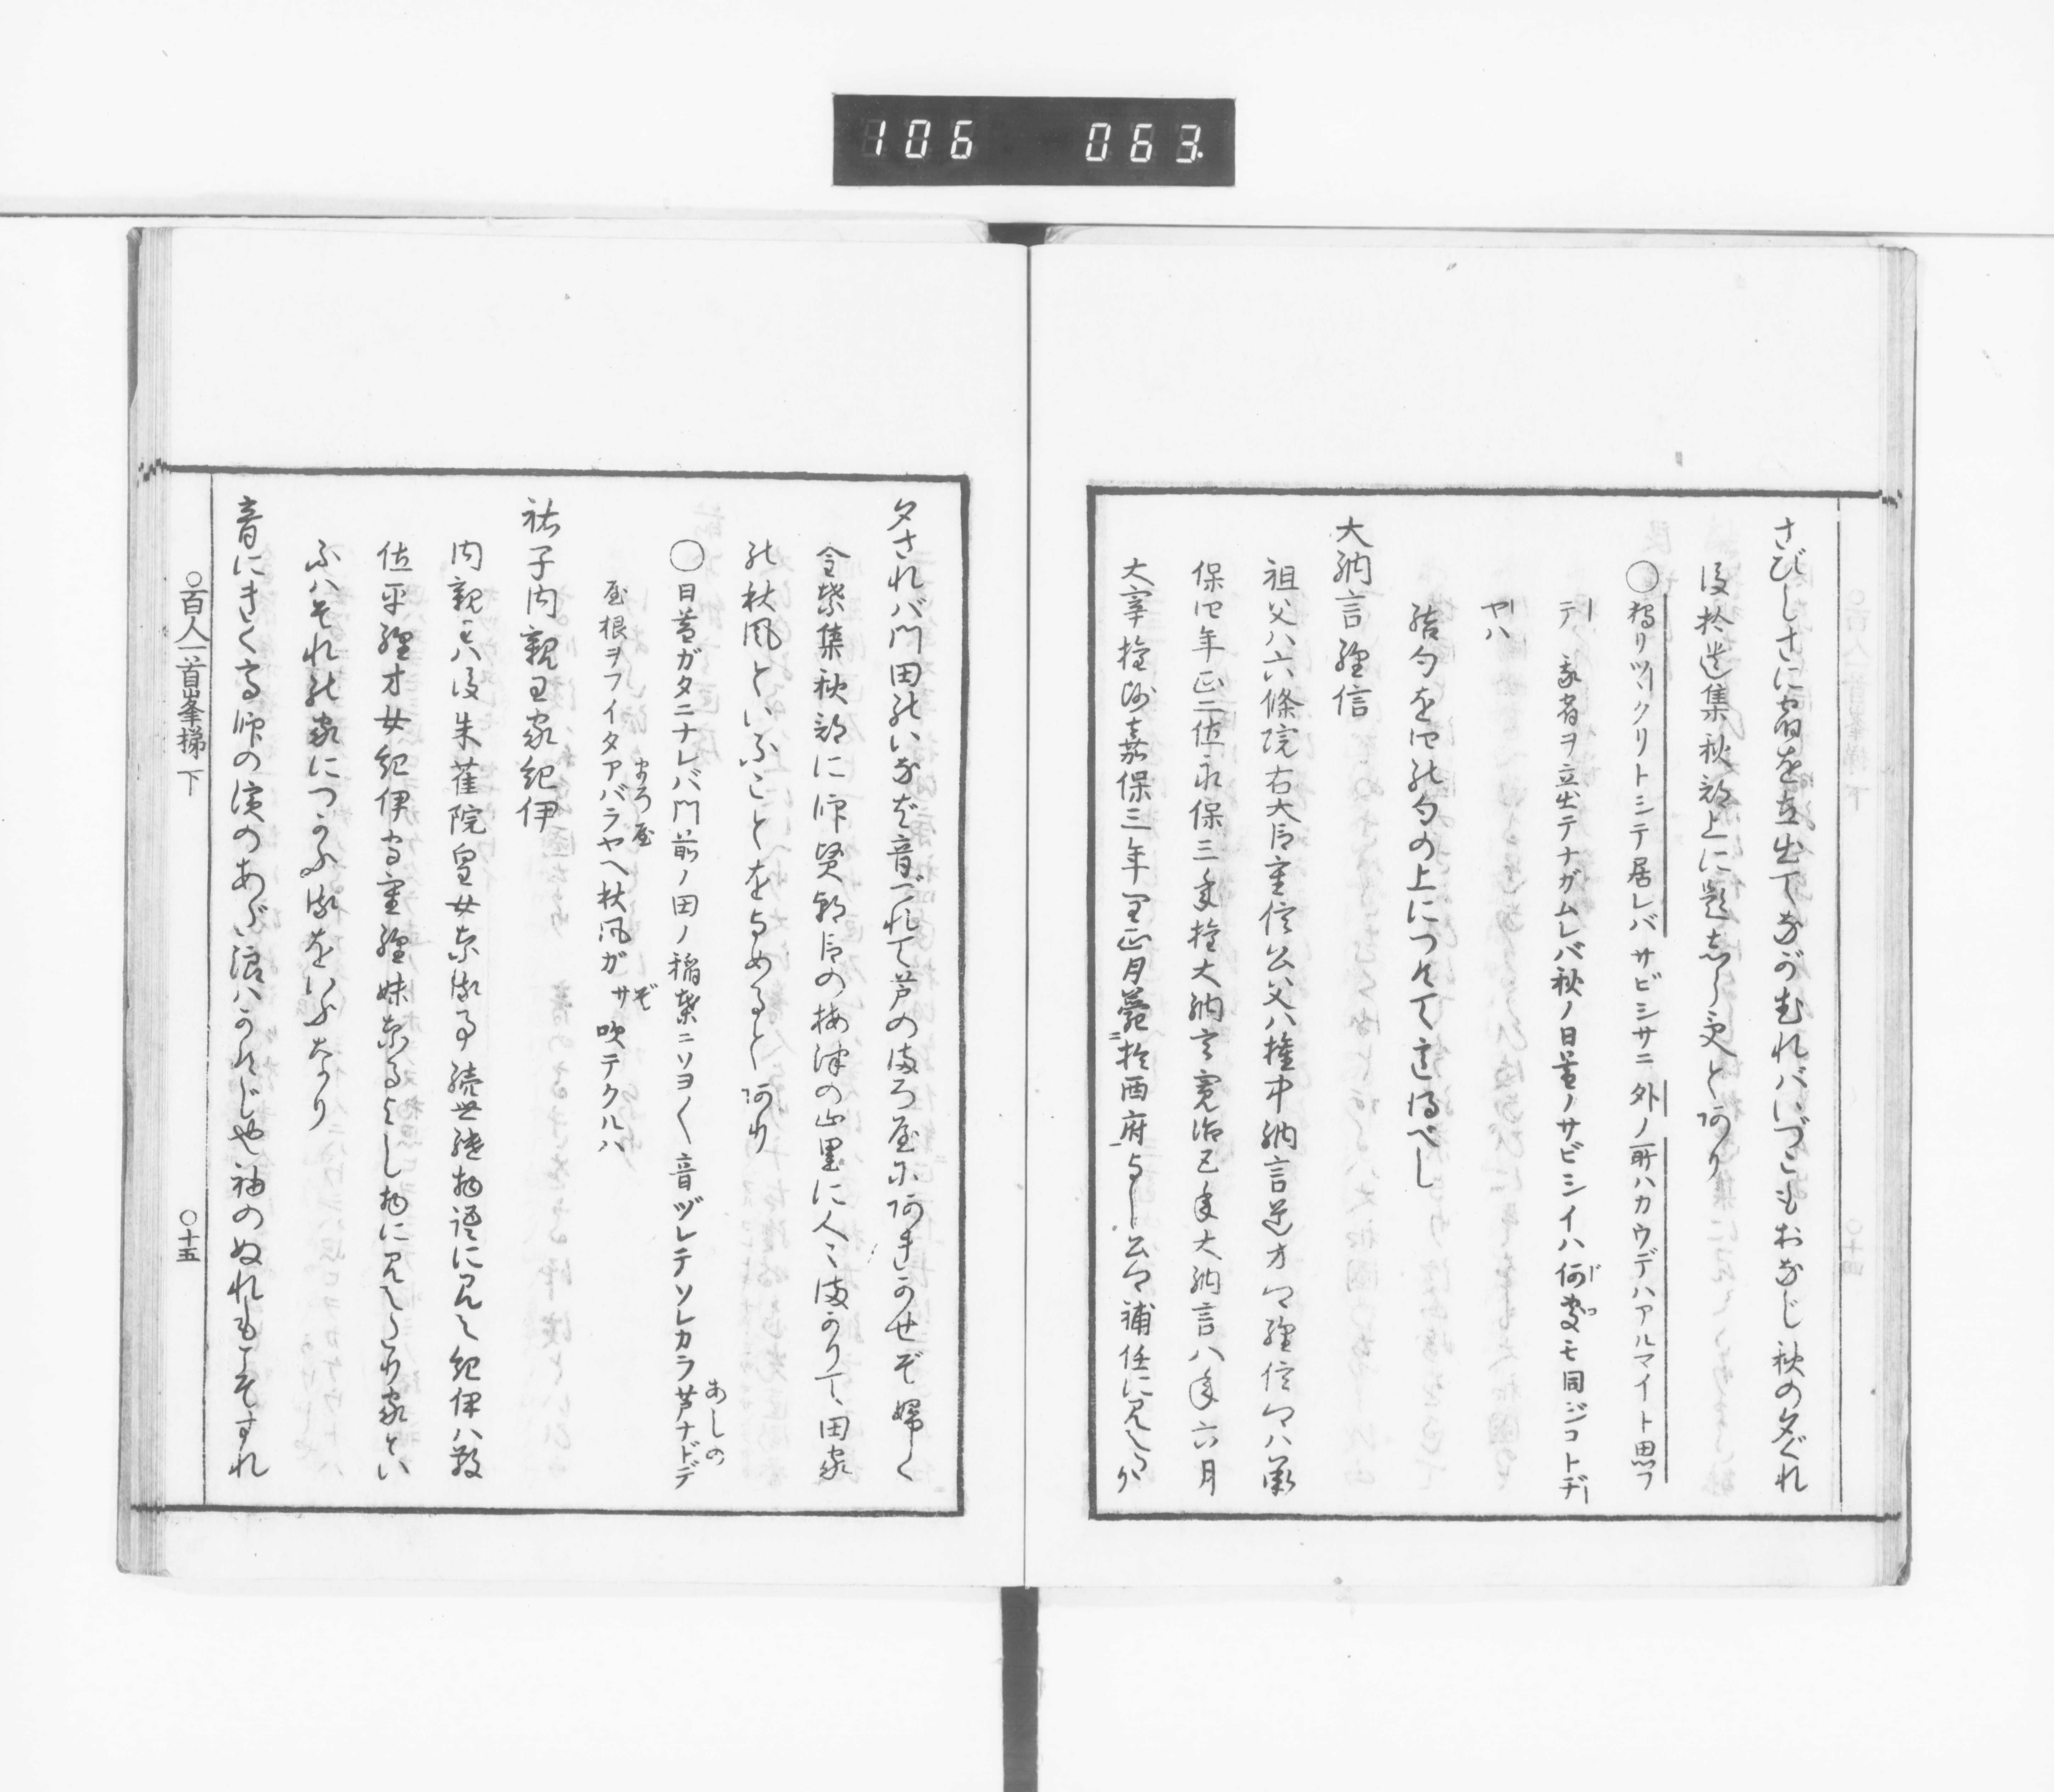 106 063
さびしさに宿を立出てながむればいづこもおなじ秋の夕ぐれ
後拾遺集秋部上に題しらずとあり
○独リツヽクリトシテ居レバサビシサニ外ノ所ハカウデハアルマイト思フ
テ 我宿ヲ立出テナガムレバ秋ノ日暮ノサビシイハ何処モ同ジコトヂ
ヤハ
結句を四の句の上につけて意得べし
大納言経信
祖父ハ六條院右大臣重信公父ハ権中納言道方卿経信卿ハ承
保四年正二位永保三年権大納言寛治五年大納言八年六月
大宰権帥嘉保三年閏正月薨於西府与し公卿補任に見えたり
夕されバ門田のいなば音づれて芦のまろ屋にあきかせぞ吹く
金葉集秋部に師賢朝臣の梅津の山里に人〻まかりて田家
の秋風といふことをよめるとあり
○日暮ガタニナレバ門前ノ田ノ稲葉ニソヨ〱音ヅレテソレカラ芦ナドデ
あしの
屋根ヲフイタアバラヤヘ秋風ガサ吹テクルハ
まろ屋
ぞ
祐子内親王家紀伊
内親王ハ後朱雀院皇女なる事続世継物語に見え紀伊ハ散
位平経方女紀伊守重経妹なるよし物に見えたり家とい
ふハそれの家につかふるをいふなり
音にきく高師の濱のあだ浪ハかけじや袖のぬれもこそすれ
○百人一首峯梯 下
○十五